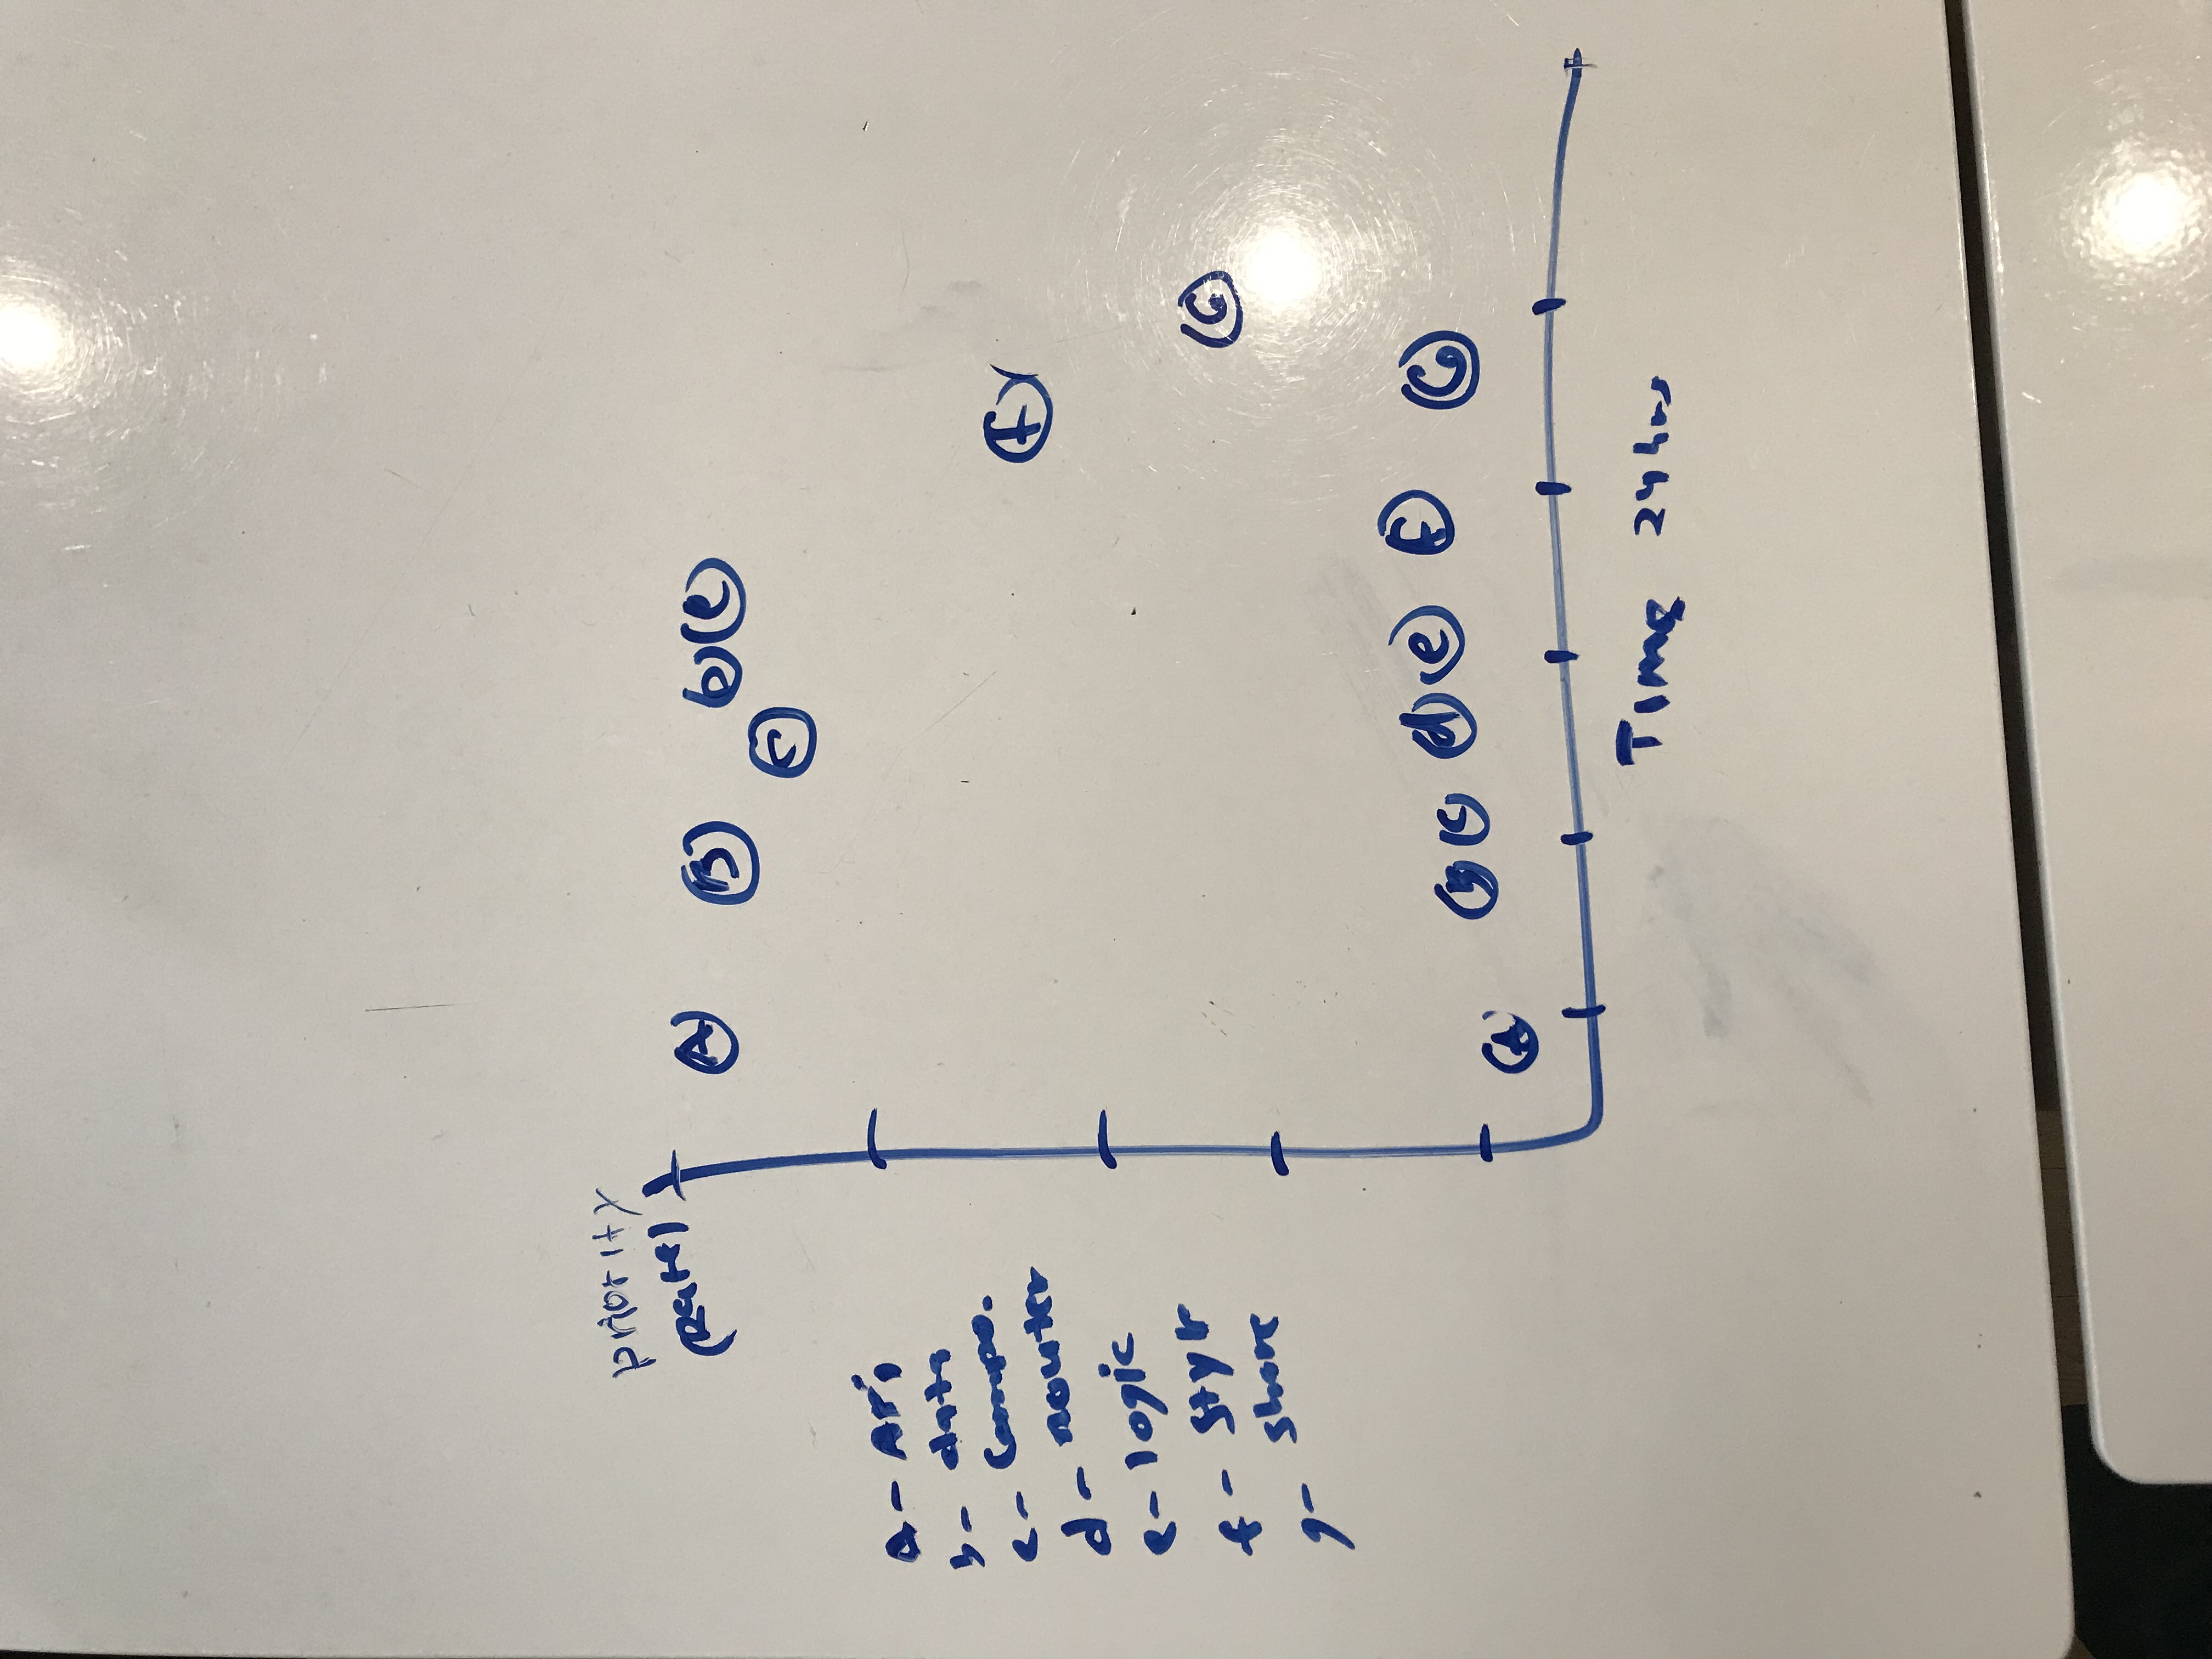 priority
(Rate)
A B D e
C
a - API
b - data
c - Compo.
d - router
e - logic
f - Style
g - share
f
G
A B C d e F G
Time 24 hrs